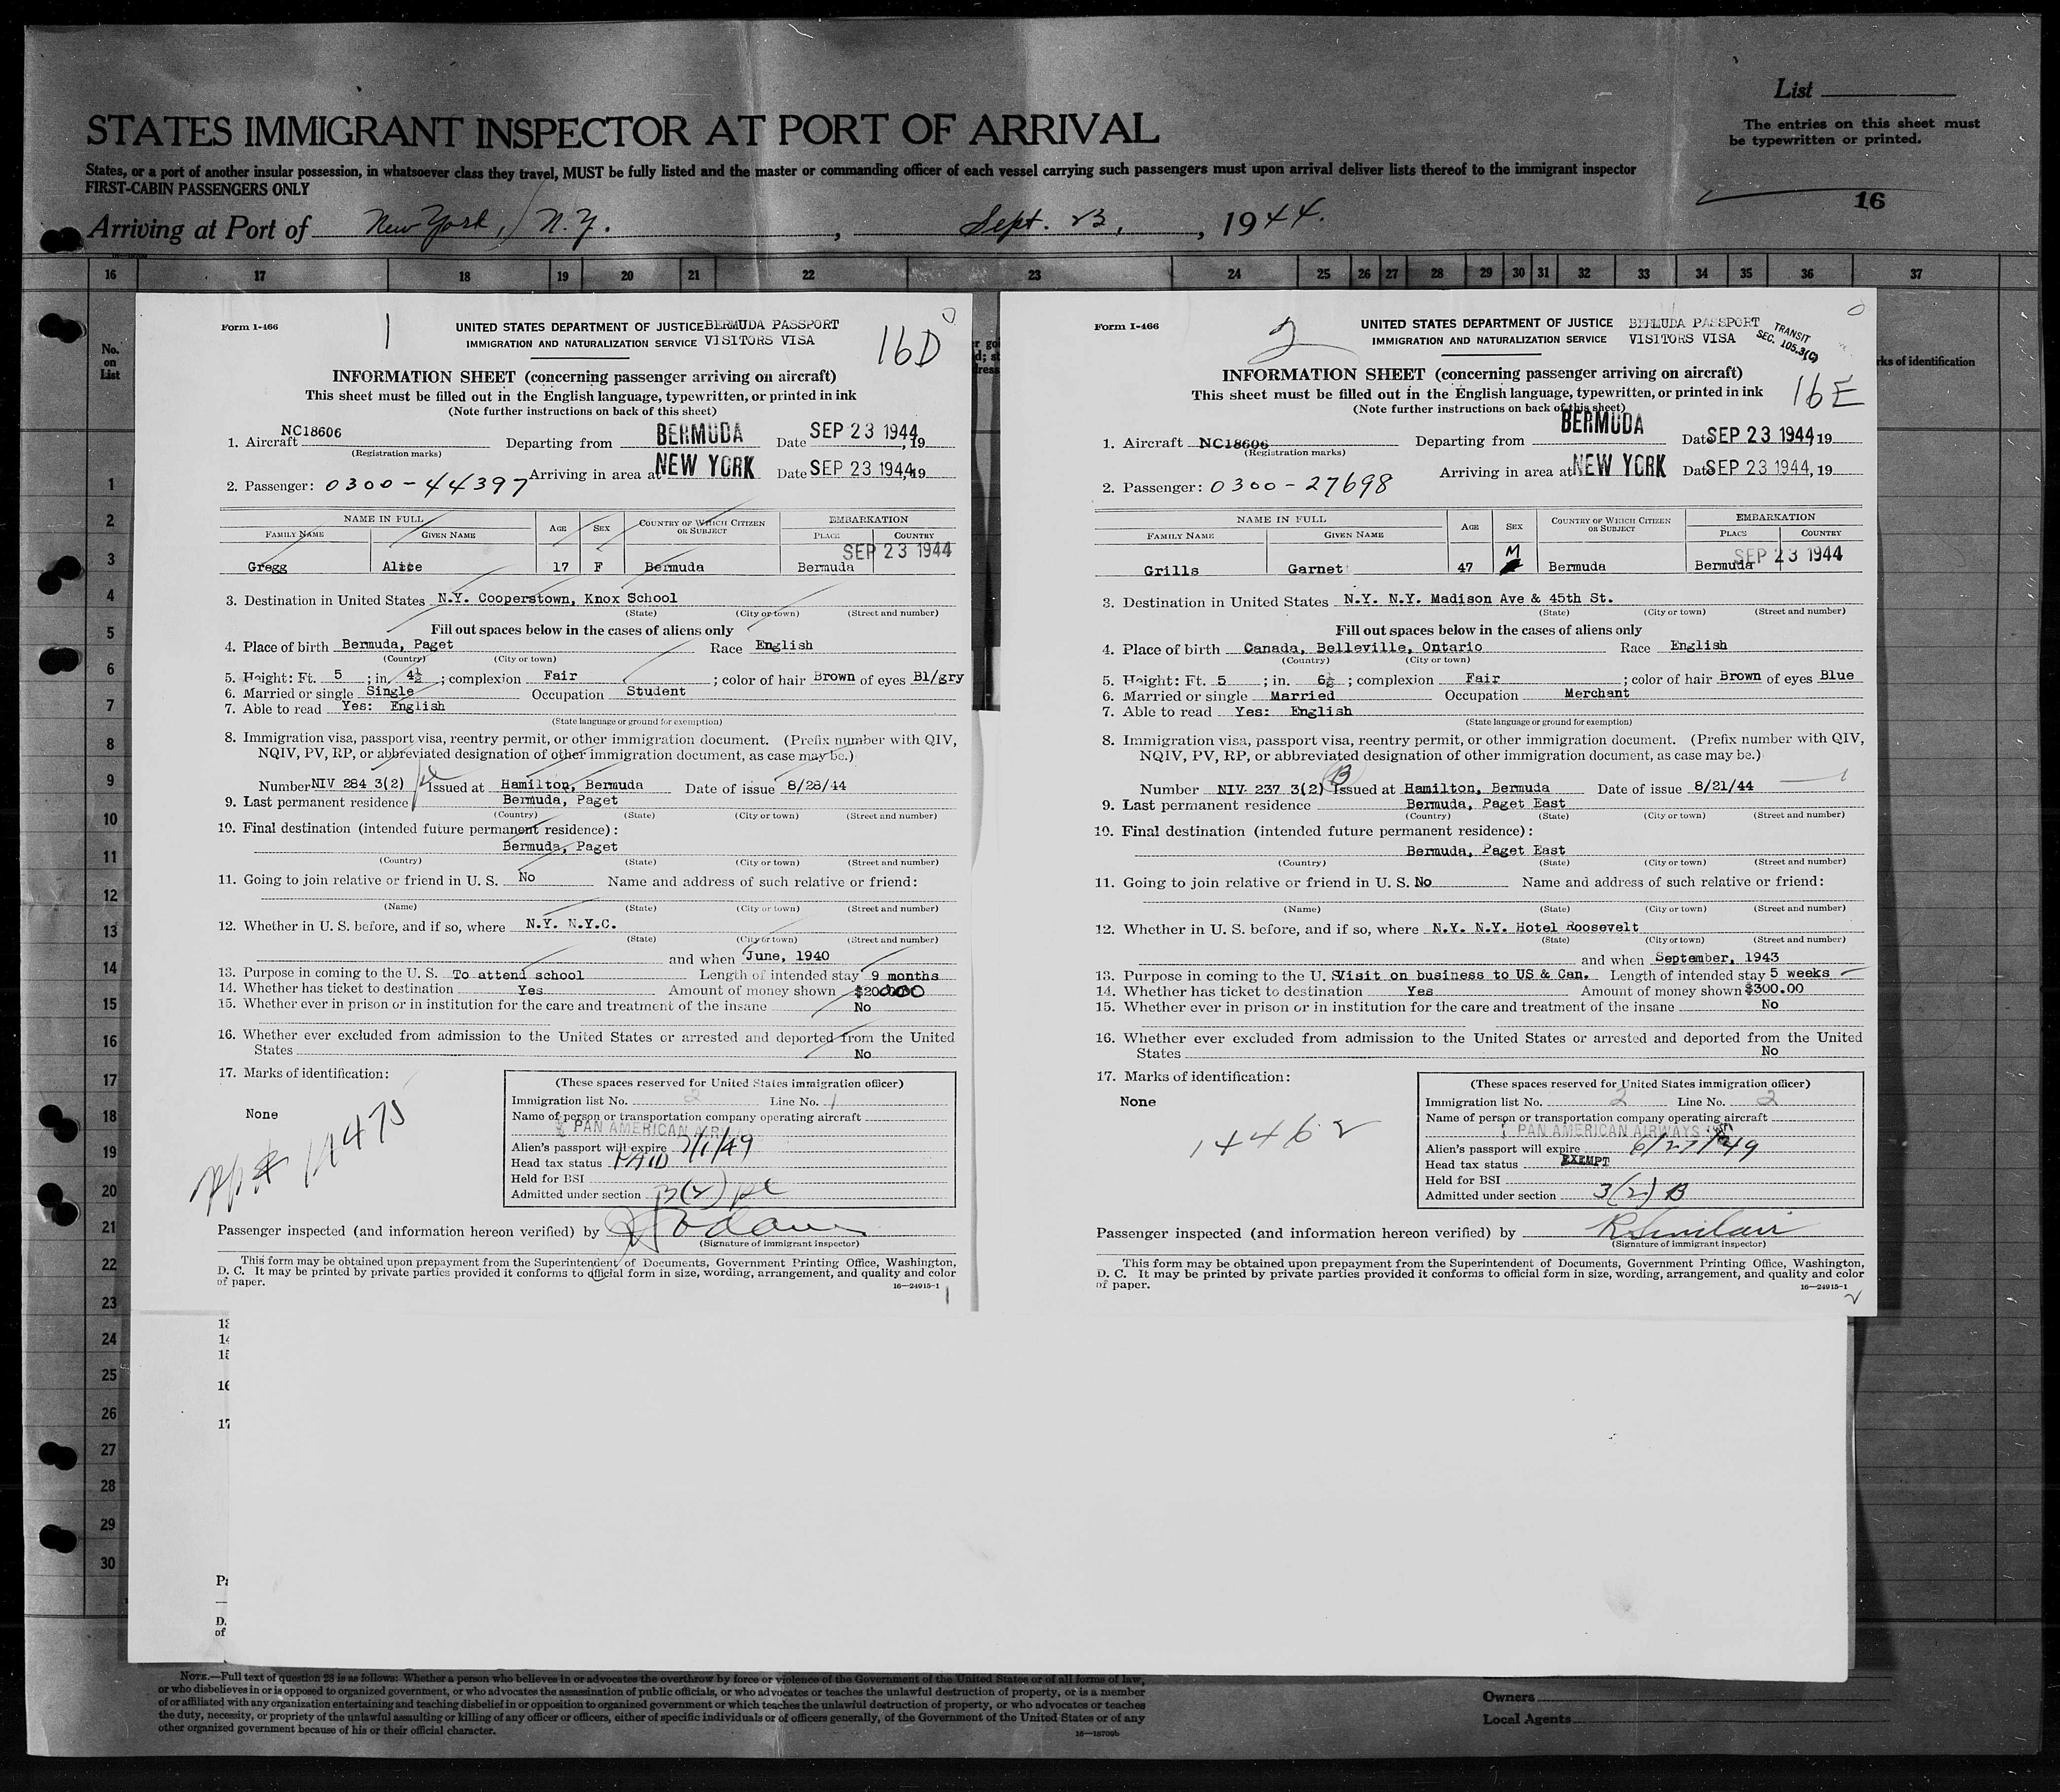 List
STATES IMMIGRANT INSPECTOR AT PORT OF ARRIVAL
The entries on this sheet must
be typewritten or printed.
States, or a port of another insular possession, in whatsoever class they travel, MUST be fully listed and the master or commanding officer of each vessel carrying such passengers must upon arrival deliver lists thereof to the immigrant inspector
FIRST-CABIN PASSENGERS ONLY
16
Arriving at Port of New York, N.Y. , Sept. 23, , 1944.
16 17 18 19 20 21 22 23 24 25 26 27 28 29 30 31 32 33 34 35 36 37
No.
on
List
rks of identification
1
2
3
4
5
6
7
8
9
10
11
12
13
14
15
16
17
18
19
20
21
22
23
24
25
26
27
28
29
30
Form I-466
1
UNITED STATES DEPARTMENT OF JUSTICE BERMUDA PASSPORT
IMMIGRATION AND NATURALIZATION SERVICE VISITORS VISA
16D
INFORMATION SHEET (concerning passenger arriving on aircraft)
This sheet must be filled out in the English language, typewritten, or printed in ink
(Note further instructions on back of this sheet)
1. Aircraft NC18606 Departing from BERMUDA Date SEP 23 1944, 19
(Registration marks)
Arriving in area at NEW YORK Date SEP 23 1944, 19
2. Passenger: 0300-44397
NAME IN FULL AGE SEX COUNTRY OF WHICH CITIZEN OR SUBJECT EMBARKATION
FAMILY NAME GIVEN NAME PLACE COUNTRY
SEP 23 1944
Gregg Alice 17 F Bermuda Bermuda
3. Destination in United States N.Y. Cooperstown, Knox School
(State) (City or town) (Street and number)
Fill out spaces below in the cases of aliens only
4. Place of birth Bermuda, Paget Race English
(Country) (City or town)
5. Height: Ft. 5 ; in. 4½ ; complexion Fair ; color of hair Brown of eyes Bl/gry
6. Married or single Single Occupation Student
7. Able to read Yes: English
(State language or ground for exemption)
8. Immigration visa, passport visa, reentry permit, or other immigration document. (Prefix number with QIV,
NQIV, PV, RP, or abbreviated designation of other immigration document, as case may be.)
Number NIV 284 3(2) Issued at Hamilton, Bermuda Date of issue 8/28/44
9. Last permanent residence Bermuda, Paget
(Country) (State) (City or town) (Street and number)
10. Final destination (intended future permanent residence):
Bermuda, Paget
(Country) (State) (City or town) (Street and number)
11. Going to join relative or friend in U. S. No Name and address of such relative or friend:
(Name) (State) (City or town) (Street and number)
12. Whether in U. S. before, and if so, where N.Y. N.Y.C.
(State) (City or town) (Street and number)
and when June, 1940
13. Purpose in coming to the U. S. To attend school Length of intended stay 9 months
14. Whether has ticket to destination Yes Amount of money shown
15. Whether ever in prison or in institution for the care and treatment of the insane No
16. Whether ever excluded from admission to the United States or arrested and deported from the United
States No
17. Marks of identification:
None
14475
(These spaces reserved for United States immigration officer)
Immigration list No. 2 Line No. 1
Name of person or transportation company operating aircraft
PAN AMERICAN AIRWAYS
Alien's passport will expire 7/1/49
Head tax status PAID
Held for BSI
Admitted under section 3(2)
Passenger inspected (and information hereon verified) by
(Signature of immigrant inspector)
This form may be obtained upon prepayment from the Superintendent of Documents, Government Printing Office, Washington,
D. C. It may be printed by private parties provided it conforms to official form in size, wording, arrangement, and quality and color
of paper.
16—24915-1
1
Form I-466
2
UNITED STATES DEPARTMENT OF JUSTICE BERMUDA PASSPORT
IMMIGRATION AND NATURALIZATION SERVICE VISITORS VISA
TRANSIT
SEC. 105.3(C)
16E
INFORMATION SHEET (concerning passenger arriving on aircraft)
This sheet must be filled out in the English language, typewritten, or printed in ink
(Note further instructions on back of this sheet)
1. Aircraft NC18606 Departing from BERMUDA Date SEP 23 1944, 19
(Registration marks)
Arriving in area at NEW YORK Date SEP 23 1944, 19
2. Passenger: 0300-27698
NAME IN FULL AGE SEX COUNTRY OF WHICH CITIZEN OR SUBJECT EMBARKATION
FAMILY NAME GIVEN NAME PLACE COUNTRY
SEP 23 1944
Grills Garnet 47 M Bermuda Bermuda
3. Destination in United States N.Y. N.Y. Madison Ave & 45th St.
(State) (City or town) (Street and number)
Fill out spaces below in the cases of aliens only
4. Place of birth Canada, Belleville, Ontario Race English
(Country) (City or town)
5. Height: Ft. 5 ; in. 6½ ; complexion Fair ; color of hair Brown of eyes Blue
6. Married or single Married Occupation Merchant
7. Able to read Yes: English
(State language or ground for exemption)
8. Immigration visa, passport visa, reentry permit, or other immigration document. (Prefix number with QIV,
NQIV, PV, RP, or abbreviated designation of other immigration document, as case may be.)
Number NIV 237 3(2) B Issued at Hamilton, Bermuda Date of issue 8/21/44
9. Last permanent residence Bermuda, Paget East
(Country) (State) (City or town) (Street and number)
10. Final destination (intended future permanent residence):
Bermuda, Paget East
(Country) (State) (City or town) (Street and number)
11. Going to join relative or friend in U. S. No Name and address of such relative or friend:
(Name) (State) (City or town) (Street and number)
12. Whether in U. S. before, and if so, where N.Y. N.Y. Hotel Roosevelt
(State) (City or town) (Street and number)
and when September, 1943
13. Purpose in coming to the U. S. Visit on business to US & Can. Length of intended stay 5 weeks
14. Whether has ticket to destination Yes Amount of money shown $300.00
15. Whether ever in prison or in institution for the care and treatment of the insane No
16. Whether ever excluded from admission to the United States or arrested and deported from the United
States No
17. Marks of identification:
None
14462
(These spaces reserved for United States immigration officer)
Immigration list No. 2 Line No. 2
Name of person or transportation company operating aircraft
PAN AMERICAN AIRWAYS
Alien's passport will expire 6/27/49
Head tax status EXEMPT
Held for BSI
Admitted under section 3(2) B
Passenger inspected (and information hereon verified) by R Sinclair
(Signature of immigrant inspector)
This form may be obtained upon prepayment from the Superintendent of Documents, Government Printing Office, Washington,
D. C. It may be printed by private parties provided it conforms to official form in size, wording, arrangement, and quality and color
of paper.
16—24915-1
2
16
17
D.
of
NOTE.—Full text of question 28 is as follows: Whether a person who believes in or advocates the overthrow by force or violence of the Government of the United States or of all forms of law,
or who disbelieves in or is opposed to organized government, or who advocates the assassination of public officials, or who advocates or teaches the unlawful destruction of property, or is a member
of or affiliated with any organization entertaining and teaching disbelief in or opposition to organized government or which teaches the unlawful destruction of property, or who advocates or teaches
the duty, necessity, or propriety of the unlawful assaulting or killing of any officer or officers, either of specific individuals or of officers generally, of the Government of the United States or of any
other organized government because of his or their official character.
16—18700b
Owners
Local Agents